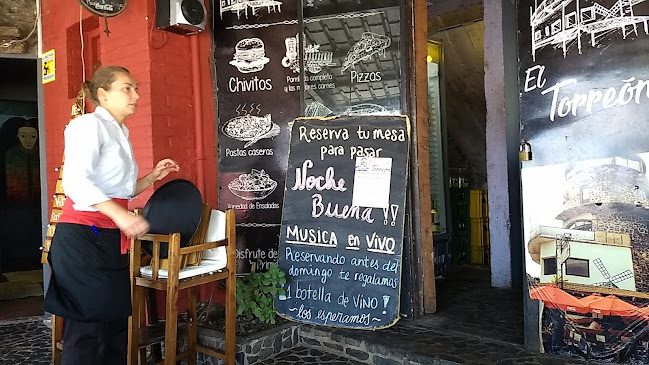 Chivitos
Parrilla completa
y las mejores carnes
Pizzas
Pastas caseras
Variedad de Ensaladas
Disfrute de
Reserva tu mesa
para pasar
Noche
Buena !!
MUSICA en VIVO
Reservando antes del
domingo te regalamos
1 botella de VINO !
~ los esperamos ~
El
Torreón